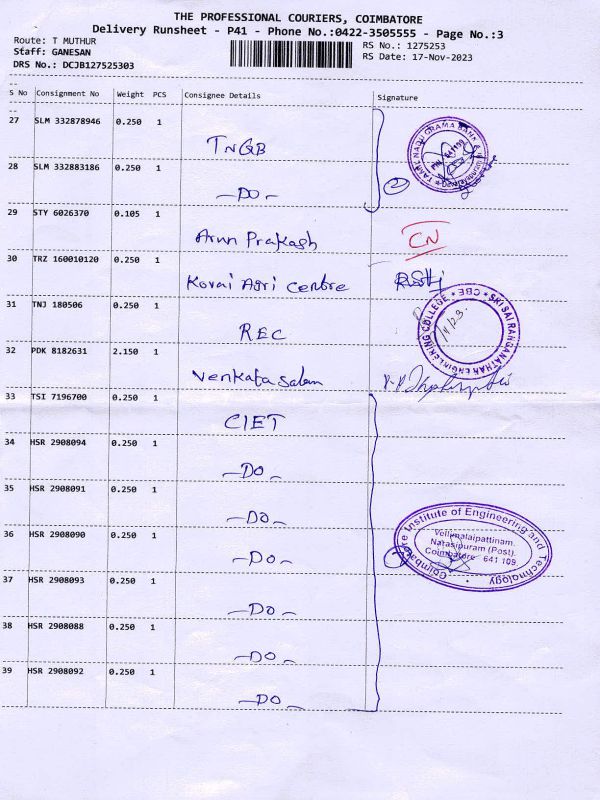 THE PROFESSIONAL COURIERS, COIMBATORE
Delivery Runsheet - P41 - Phone No.:0422-3505555 - Page No.:3
Route: T MUTHUR
RS No.: 1275253
Staff: GANESAN
RS Date: 17-Nov-2023
DRS No.: DCJB127525303
S No Consignment No Weight PCS Consignee Details Signature
27 SLM 332878946 0.250 1
TNGB
28 SLM 332883186 0.250 1
-DO-
29 STY 6026370 0.105 1
Arun Prakash CN
30 TRZ 160010120 0.250 1
Kovai Agri Centre
31 TNJ 180506 0.250 1
REC
SRI SAI RANGANATHAN ENGINEERING COLLEGE * CBE *
32 PDK 8182631 2.150 1
Venkatasalam
33 TSI 7196700 0.250 1
CIET
34 HSR 2908094 0.250 1
-DO-
35 HSR 2908091 0.250 1
-DO-
36 HSR 2908090 0.250 1
-DO-
Coimbatore Institute of Engineering and Technology
Vellimalaipattinam,
Narasipuram (Post).
Coimbatore 641 109
37 HSR 2908093 0.250 1
-DO-
38 HSR 2908088 0.250 1
-DO-
39 HSR 2908092 0.250 1
-DO-